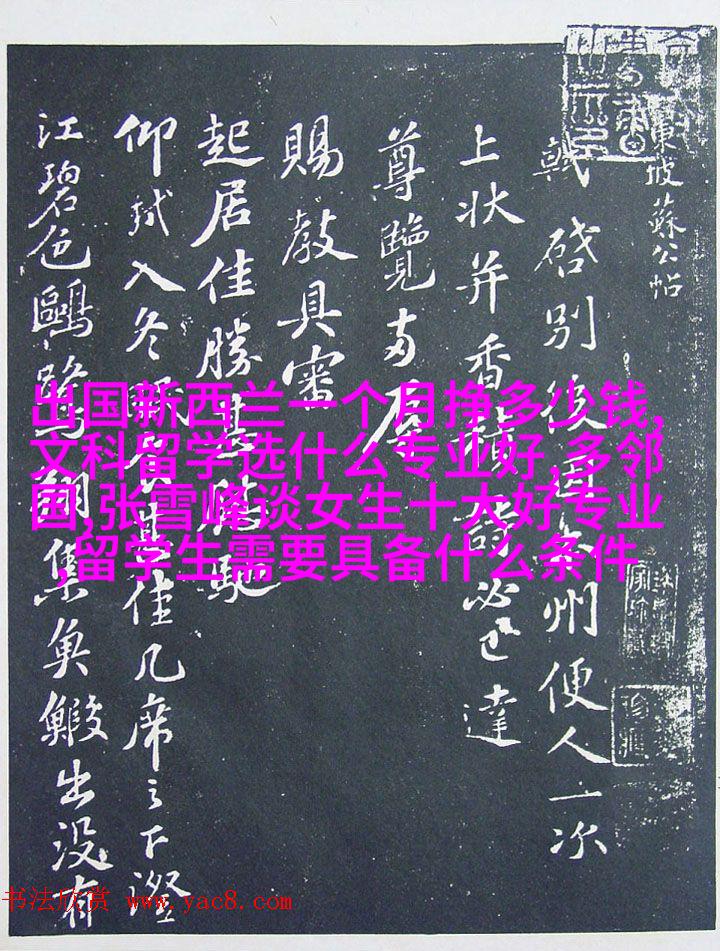 東坡蘇公帖
軾啓別後州便人一次
上状并香積詩必已達
尊覽辱
賜教具審
起居佳勝甚慰馳
仰軾入冬眠食甚佳几席之下澄
江碧色鷗鷺翔集魚鰕出没有
出国新西兰一个月挣多少钱,
文科留学选什么专业好,多邻
国,张雪峰谈女生十大好专业
,留学生需要具备什么条件
书法欣赏 www.yac8.com